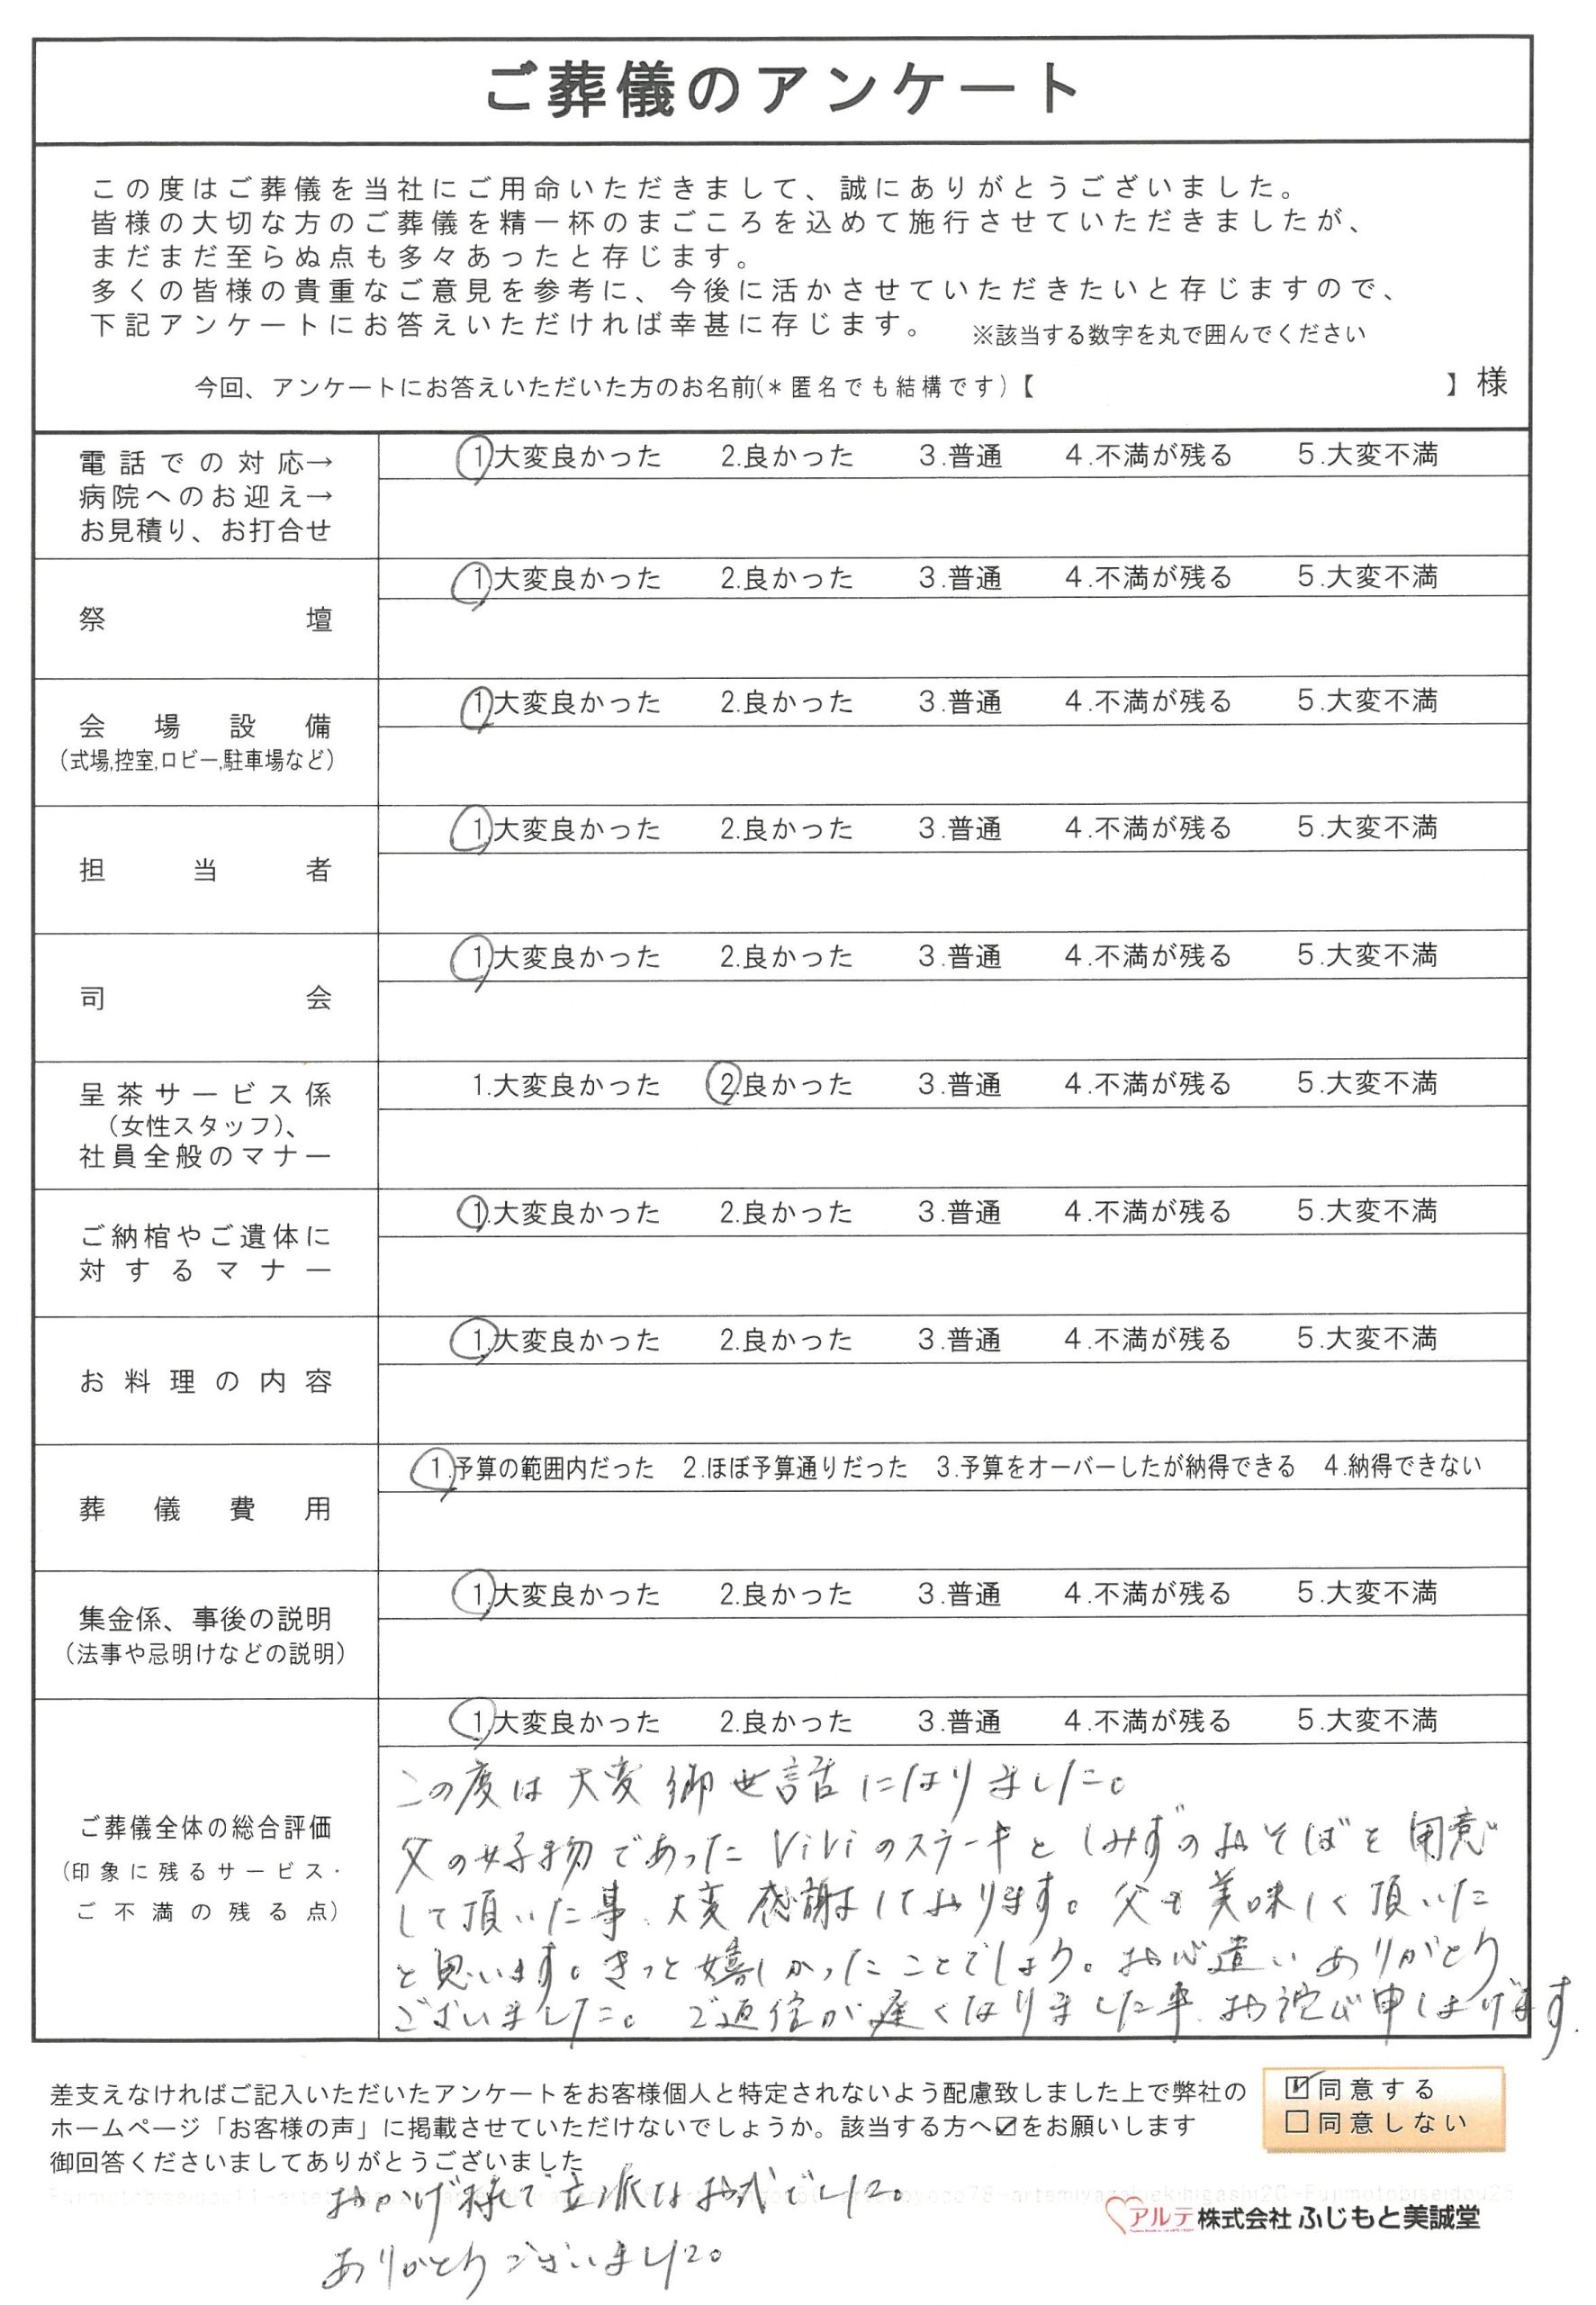 ご葬儀のアンケート
この度はご葬儀を当社にご用命いただきまして、誠にありがとうございました。
皆様の大切な方のご葬儀を精一杯のまごころを込めて施行させていただきましたが、
まだまだ至らぬ点も多々あったと存じます。
多くの皆様の貴重なご意見を参考に、今後に活かさせていただきたいと存じますので、
下記アンケートにお答えいただければ幸甚に存じます。 ※該当する数字を丸で囲んでください
今回、アンケートにお答えいただいた方のお名前(*匿名でも結構です)【 】様
電話での対応→
病院へのお迎え→
お見積り、お打合せ
1.大変良かった 2.良かった 3.普通 4.不満が残る 5.大変不満
祭壇
1.大変良かった 2.良かった 3.普通 4.不満が残る 5.大変不満
会場設備
(式場,控室,ロビー,駐車場など)
1.大変良かった 2.良かった 3.普通 4.不満が残る 5.大変不満
担当者
1.大変良かった 2.良かった 3.普通 4.不満が残る 5.大変不満
司会
1.大変良かった 2.良かった 3.普通 4.不満が残る 5.大変不満
呈茶サービス係
(女性スタッフ)、
社員全般のマナー
1.大変良かった 2.良かった 3.普通 4.不満が残る 5.大変不満
ご納棺やご遺体に
対するマナー
1.大変良かった 2.良かった 3.普通 4.不満が残る 5.大変不満
お料理の内容
1.大変良かった 2.良かった 3.普通 4.不満が残る 5.大変不満
葬儀費用
1.予算の範囲内だった 2.ほぼ予算通りだった 3.予算をオーバーしたが納得できる 4.納得できない
集金係、事後の説明
(法事や忌明けなどの説明)
1.大変良かった 2.良かった 3.普通 4.不満が残る 5.大変不満
ご葬儀全体の総合評価
(印象に残るサービス・
ご不満の残る点)
1.大変良かった 2.良かった 3.普通 4.不満が残る 5.大変不満
この度は大変御世話になりました。
父の好物であったViViのステーキとしみずのおそばを用意
して頂いた事、大変感謝しております。父も美味しく頂いた
と思います。きっと嬉しかったことでしょう。お心遣いありがとう
ございました。ご返信が遅くなりました事、お詫び申し上げます.
差支えなければご記入いただいたアンケートをお客様個人と特定されないよう配慮致しました上で弊社の
ホームページ「お客様の声」に掲載させていただけないでしょうか。該当する方へ☑をお願いします
御回答くださいましてありがとうございました
☑同意する
□同意しない
おかげ様で立派なお式でした。
ありがとうございました。
アルテ 株式会社 ふじもと美誠堂